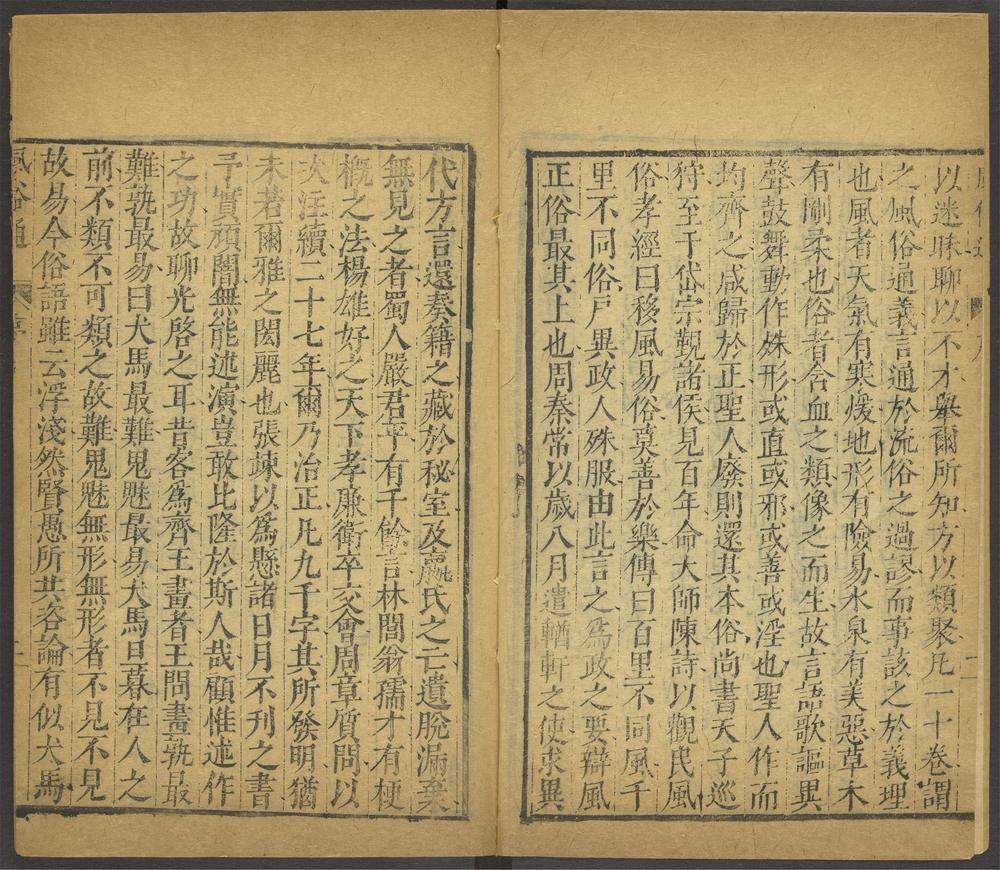 以迷昧聊以不才舉爾所知方以類聚凡一十卷謂
之風俗通義言通於流俗之過謬而事該之於義理
也風者天氣有寒煖地形有險易水泉有美惡草木
有剛柔也俗者含血之類像之而生故言語歌謳異
聲鼓舞動作殊形或直或邪或善或淫也聖人作而
均齊之咸歸於正聖人廢則還其本俗尚書天子巡
狩至于岱宗覲諸侯見百年命大師陳詩以觀民風
俗孝經曰移風易俗莫善於樂傳曰百里不同風千
里不同俗戶異政人殊服由此言之為政之要辯風
正俗最其上也周秦常以歲八月遣輶軒之使求異
代方言還奏籍之藏於秘室及嬴氏之亡遺脫漏棄
無見之者蜀人嚴君平有千餘言林閭翁孺才有梗
概之法楊雄好之天下孝廉衛卒交會周章質問以
次注續二十七年爾乃治正凡九千字其所發明猶
未若爾雅之閎麗也張竦以為懸諸日月不刊之書
予實頑闇無能述演豈敢比隆於斯人哉顧惟述作
之功故聊光啓之耳昔客為齊王畫者王問畫孰最
難孰最易曰犬馬最難鬼魅最易犬馬旦暮在人之
前不類不可類之故難鬼魅無形無形者不見不見
故易今俗語雖云浮淺然賢愚所共咨論有似犬馬
風俗通 序